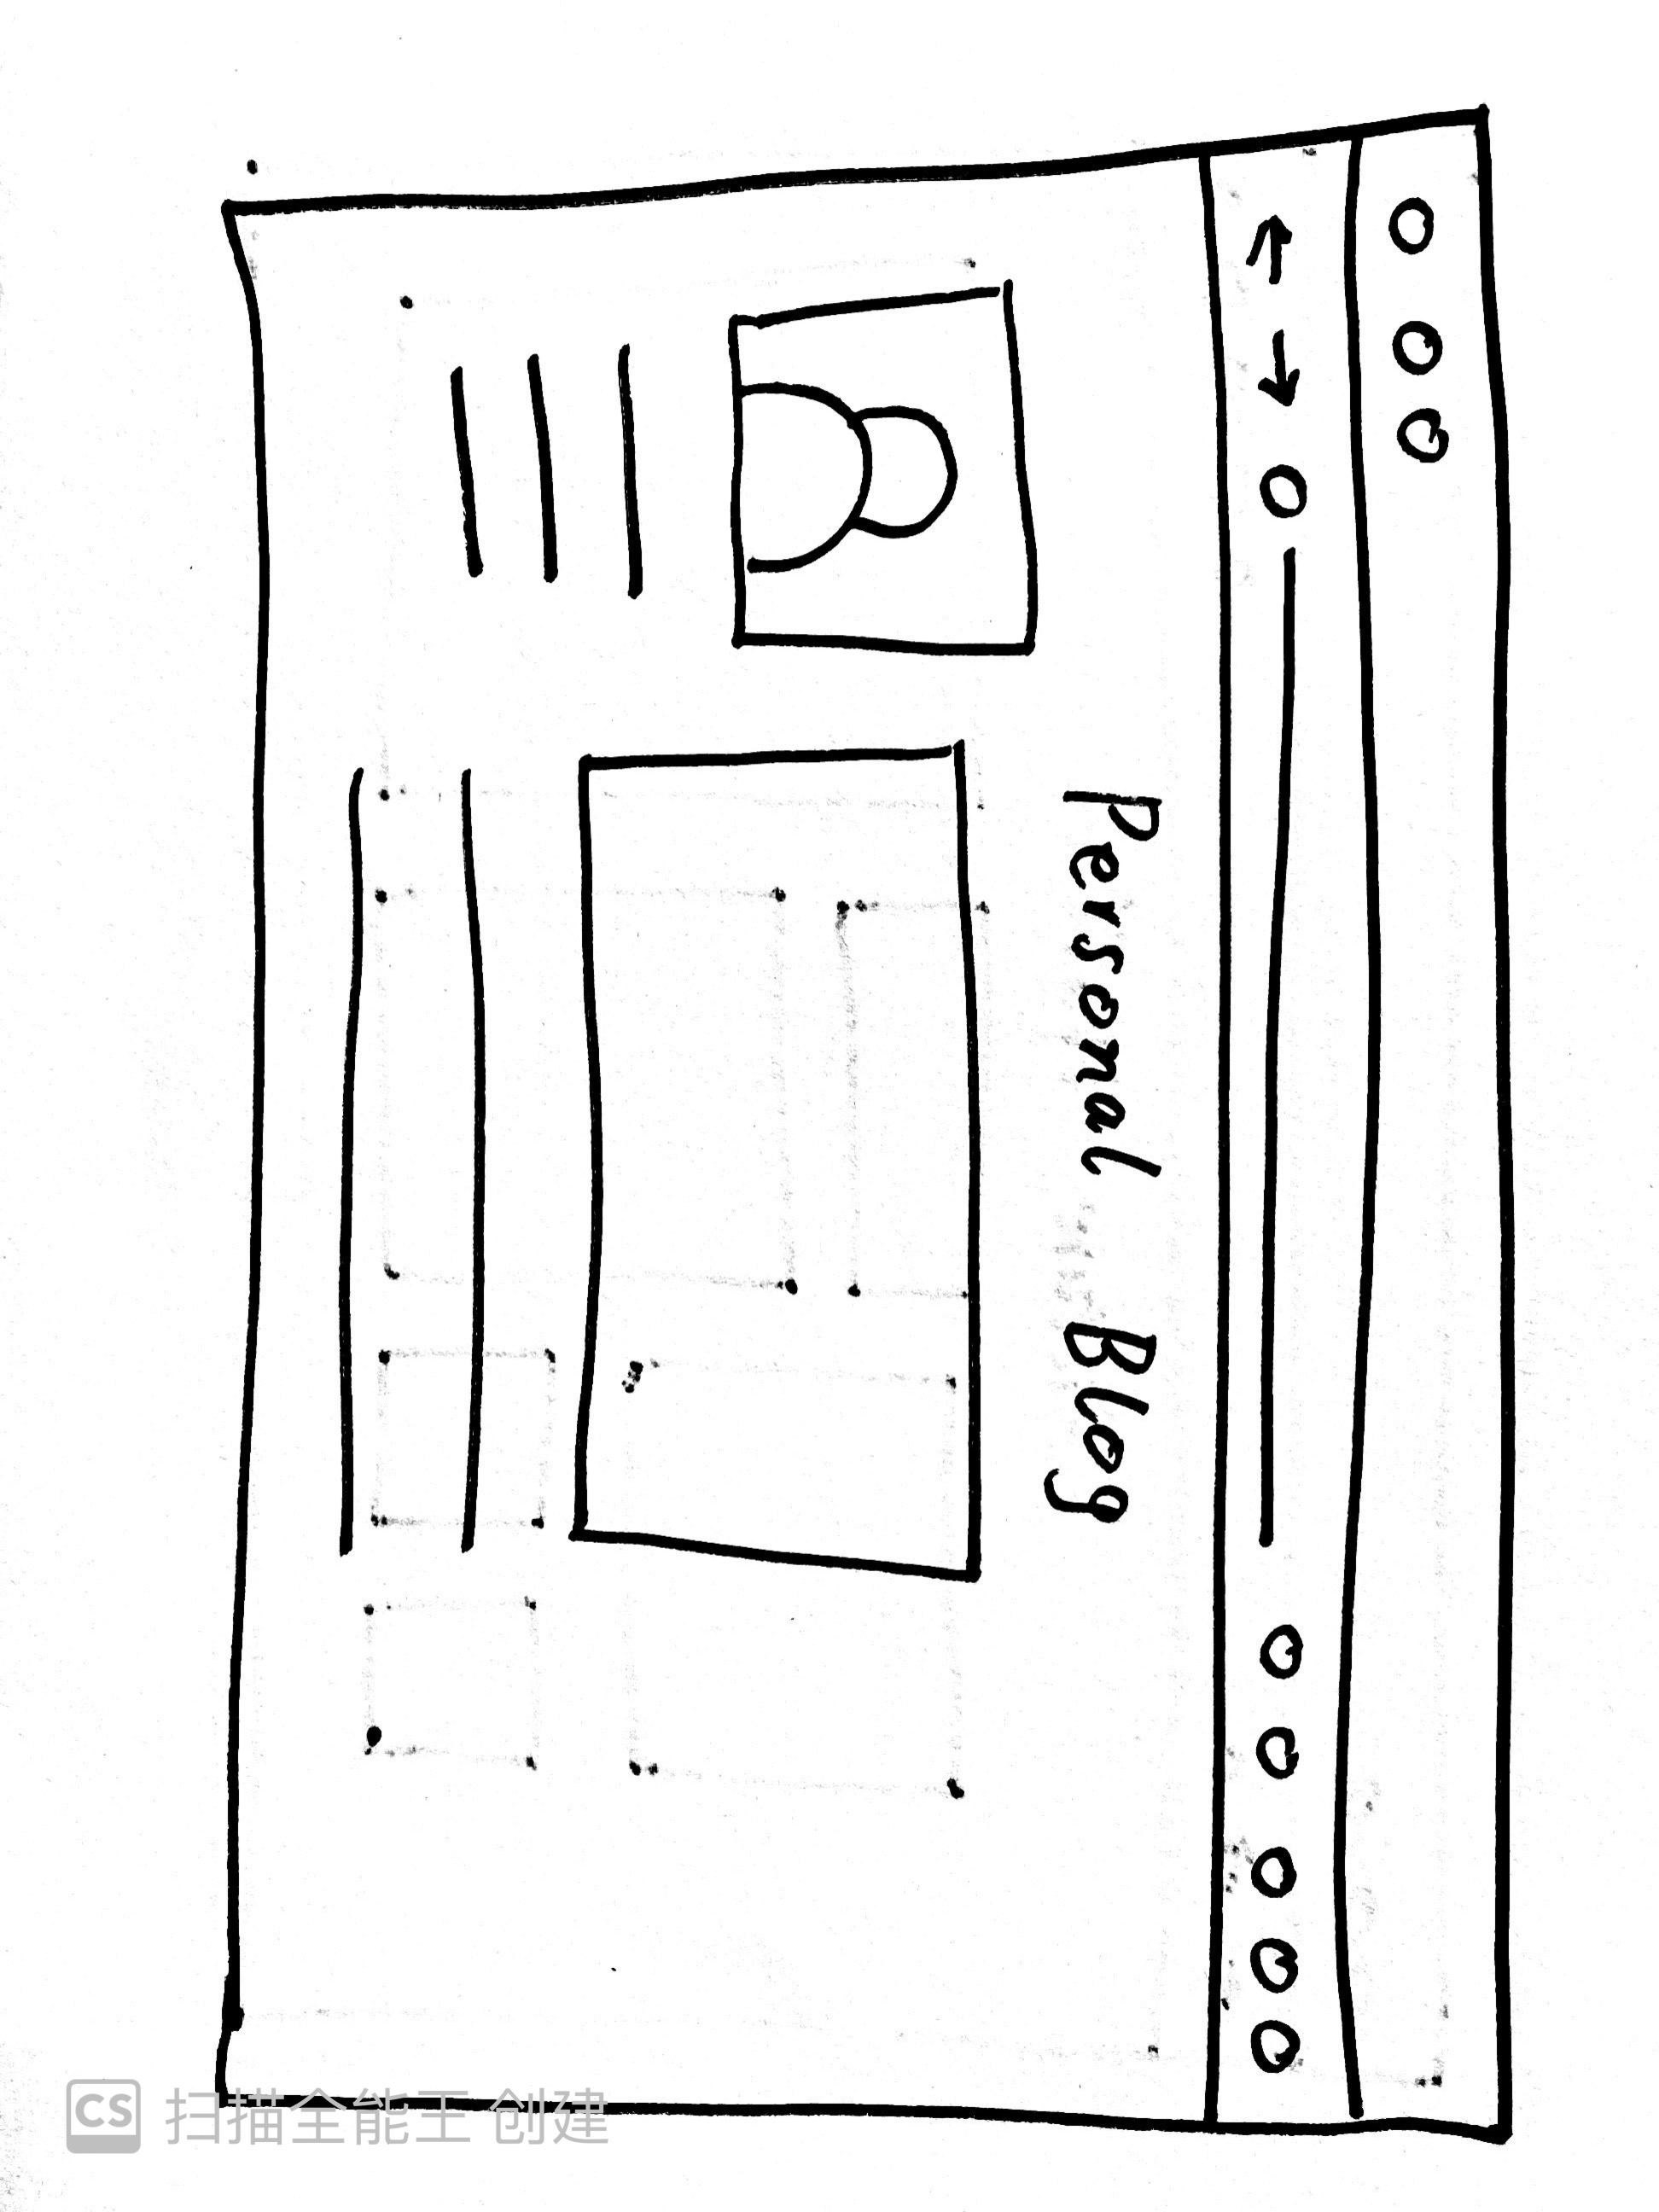 Personal Blog
CS 扫描全能王 创建